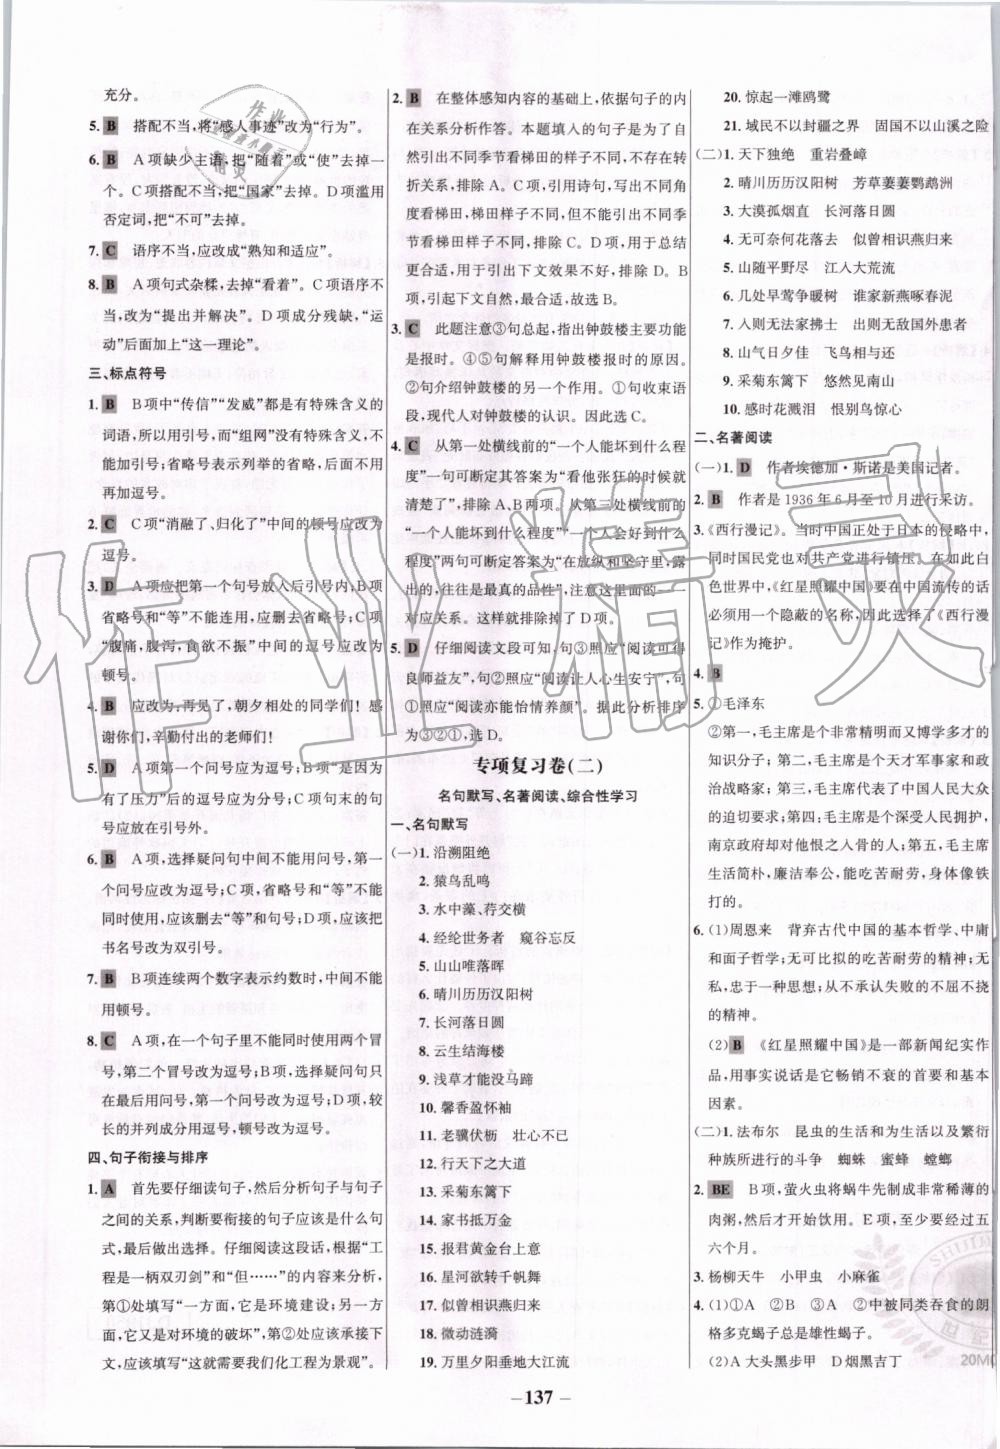 充分。
5. B　搭配不当,将“感人事迹”改为“行为”。
6. B　A项缺少主语,把“随着”或“使”去掉一个。C项搭配不当,把“国家”去掉。D项滥用
否定词,把“不可”去掉。
7. C　语序不当,应改成“熟知和适应”。
8. B　A项句式杂糅,去掉“看着”。C项语序不
当,改为“提出并解决”。D项成分残缺,“运
动”后面加上“这一理论”。
三、标点符号
1. B　B项中“传信”“发威”都是有特殊含义的
词语,所以用引号,而“组网”没有特殊含义,不
能加引号;省略号表示列举的省略,后面不用
再加逗号。
2. C　C项“消融了、归化了”中间的顿号应改为
逗号。
3. D　A项应把第一个句号放入后引号内;B项
省略号和“等”不能连用,应删去省略号;C项
“腹痛,腹泻,食欲不振”中间的逗号应改为
顿号。
4. B　应改为:再见了,朝夕相处的同学们!感
谢你们,辛勤付出的老师们!
5. D　A项第一个问号应为逗号;B项“是因为
有了压力”后的逗号应为分号;C项句末的句
号应放在引号外。
6. B　A项,选择疑问句中间不能用问号,第一
个问号应改为逗号;C项,省略号和“等”不能
同时使用,应该删去“等”和句号;D项,应该把
书名号改为双引号。
7. B　B项连续两个数字表示约数时,中间不能
用顿号。
8. C　A项,在一个句子里不能同时使用两个冒
号,第二个冒号改为逗号;B项,选择问句只
在最后用问号,第一个问号改为逗号;D项,较
长的并列成分用逗号,顿号改为逗号。
四、句子衔接与排序
1. A　首先要仔细读句子,然后分析句子与句子
之间的关系,判断要衔接的句子应该是什么句
式,最后做出选择。仔细阅读这段话,根据“工
程是一柄双刃剑”和“但……”的内容来分析,
第①处填写“一方面,它是环境建设;另一方
面,它又是对环境的破坏”,第②处应为陈述
下文,应该填写“这就需要我们化工程为景观”。
2. B　在整体感知内容的基础上,依据句子的内
在关系分析作答。本题填入的句子是为了自
然引出不同时间看梯田的样子不同,不存在转
折关系,排除A。C项,引用诗句,写出从不同角
度看梯田,梯田样子不同,但不能自然引出不同季
节看梯田样子不同,排除C。D项,用于总结
更合适,用于引出下文效果不好,排除D。B
项,引出下文自然,最合适,故选B。
3. C　此题注意③句总起,指出钟鼓楼主要功能
是报时。④⑤句解释用钟鼓楼报时的原因。
②句介绍钟鼓楼的另一个作用。①句收束语
段,现代人对钟鼓楼的认识。因此选C。
4. C　从第一处横线前的“一个人能坏到什么程
度”一句可断定其答案为“看他张狂的时候就
清楚了”,排除A、B两项。从第三处横线前的
“一个人能坏到什么程度”“一个人会好到什么
程度”两句可断定答案为“在放纵和坚守里,露
出的,往往是最真的品性”,注意这里面的一一
对应关系。这样就排除掉了D项。
5. D　仔细阅读文段可知,句③照应“阅读得到
良师益友”,句②照应“阅读让人心生安宁”,句
①照应“阅读亦能怡情养颜”。据此分析排序
应为③②①,选D。
专项复习卷(二)
名句默写、名著阅读、综合性学习
一、名句默写
(一)1. 沿溯阻绝
2. 猿鸟乱鸣
3. 水中藻、荇交横
4. 经纶世务者　窥谷忘反
5. 山山唯落晖
6. 晴川历历汉阳树
7. 长河落日圆
8. 云生结海楼
9. 浅草才能没马蹄
10. 馨香盈怀袖
11. 老骥伏枥　壮心不已
12. 行天下之大道
13. 采菊东篱下
14. 家书抵万金
15. 报君黄金台上意
16. 星河欲转千帆舞
17. 似曾相识燕归来
18. 微动涟漪
19. 万里夕阳垂地大江流
20. 惊起一滩鸥鹭
21. 域民不以封疆之界　固国不以山溪之险
(二)1. 天下独绝　重岩叠嶂
2. 晴川历历汉阳树　芳草萋萋鹦鹉洲
3. 大漠孤烟直　长河落日圆
4. 无可奈何花落去　似曾相识燕归来
5. 山随平野尽　江入大荒流
6. 几处早莺争暖树　谁家新燕啄春泥
7. 入则无法家拂士　出则无敌国外患者
8. 山气日夕佳　飞鸟相与还
9. 采菊东篱下　悠然见南山
10. 感时花溅泪　恨别鸟惊心
二、名著阅读
(一)1. D　作者埃德加·斯诺是美国记者。
2. B　作者是1936年6月至10月进行采访。
3.《西行漫记》。当时中国正处于日本的侵略中,
同时国民党也对共产党进行镇压。在如此白
色世界中,《红星照耀中国》要在中国流传的话
必须用一个隐蔽的名称,因此选择了《西行漫
记》作为掩护。
4. B
5. ①毛泽东
②第一,毛主席是个非常精明而又博学多才的
知识分子;第二,毛主席是个天才军事家和政
治战略家;第三,毛主席代表了中国人民大众
的迫切要求;第四;毛主席是个深受人民拥护,
南京政府却对他恨之入骨的人;第五,毛主席
生活简朴,廉洁奉公,能吃苦耐劳,身体像铁
打的。
6. (1)周恩来　背弃古代中国的基本哲学、中庸
和面子哲学;无可比拟的吃苦耐劳的精神;无
私,忠于一种思想;从不承认失败的不屈不挠
的精神。
(2) B　《红星照耀中国》是一部新闻纪实作
品,用事实说话是它畅销不衰的首要和基本
因素。
(二)1. 法布尔　昆虫的生活和为生活以及繁衍
种族所进行的斗争　蜘蛛　蜜蜂　螳螂
2. BE　B项,萤火虫将蜗牛先制成非常稀薄的
肉粥,然后才开始饮用。E项,至少要经过五
六个月。
3. 杨柳天牛　小甲虫　小麻雀
4. (1)①A　②B　③A　②中被同类吞食的朗
格多克蝎子总是雄性蝎子。
(2)A 大头黑步甲　D 烟黑吉丁
－137－
作业精灵